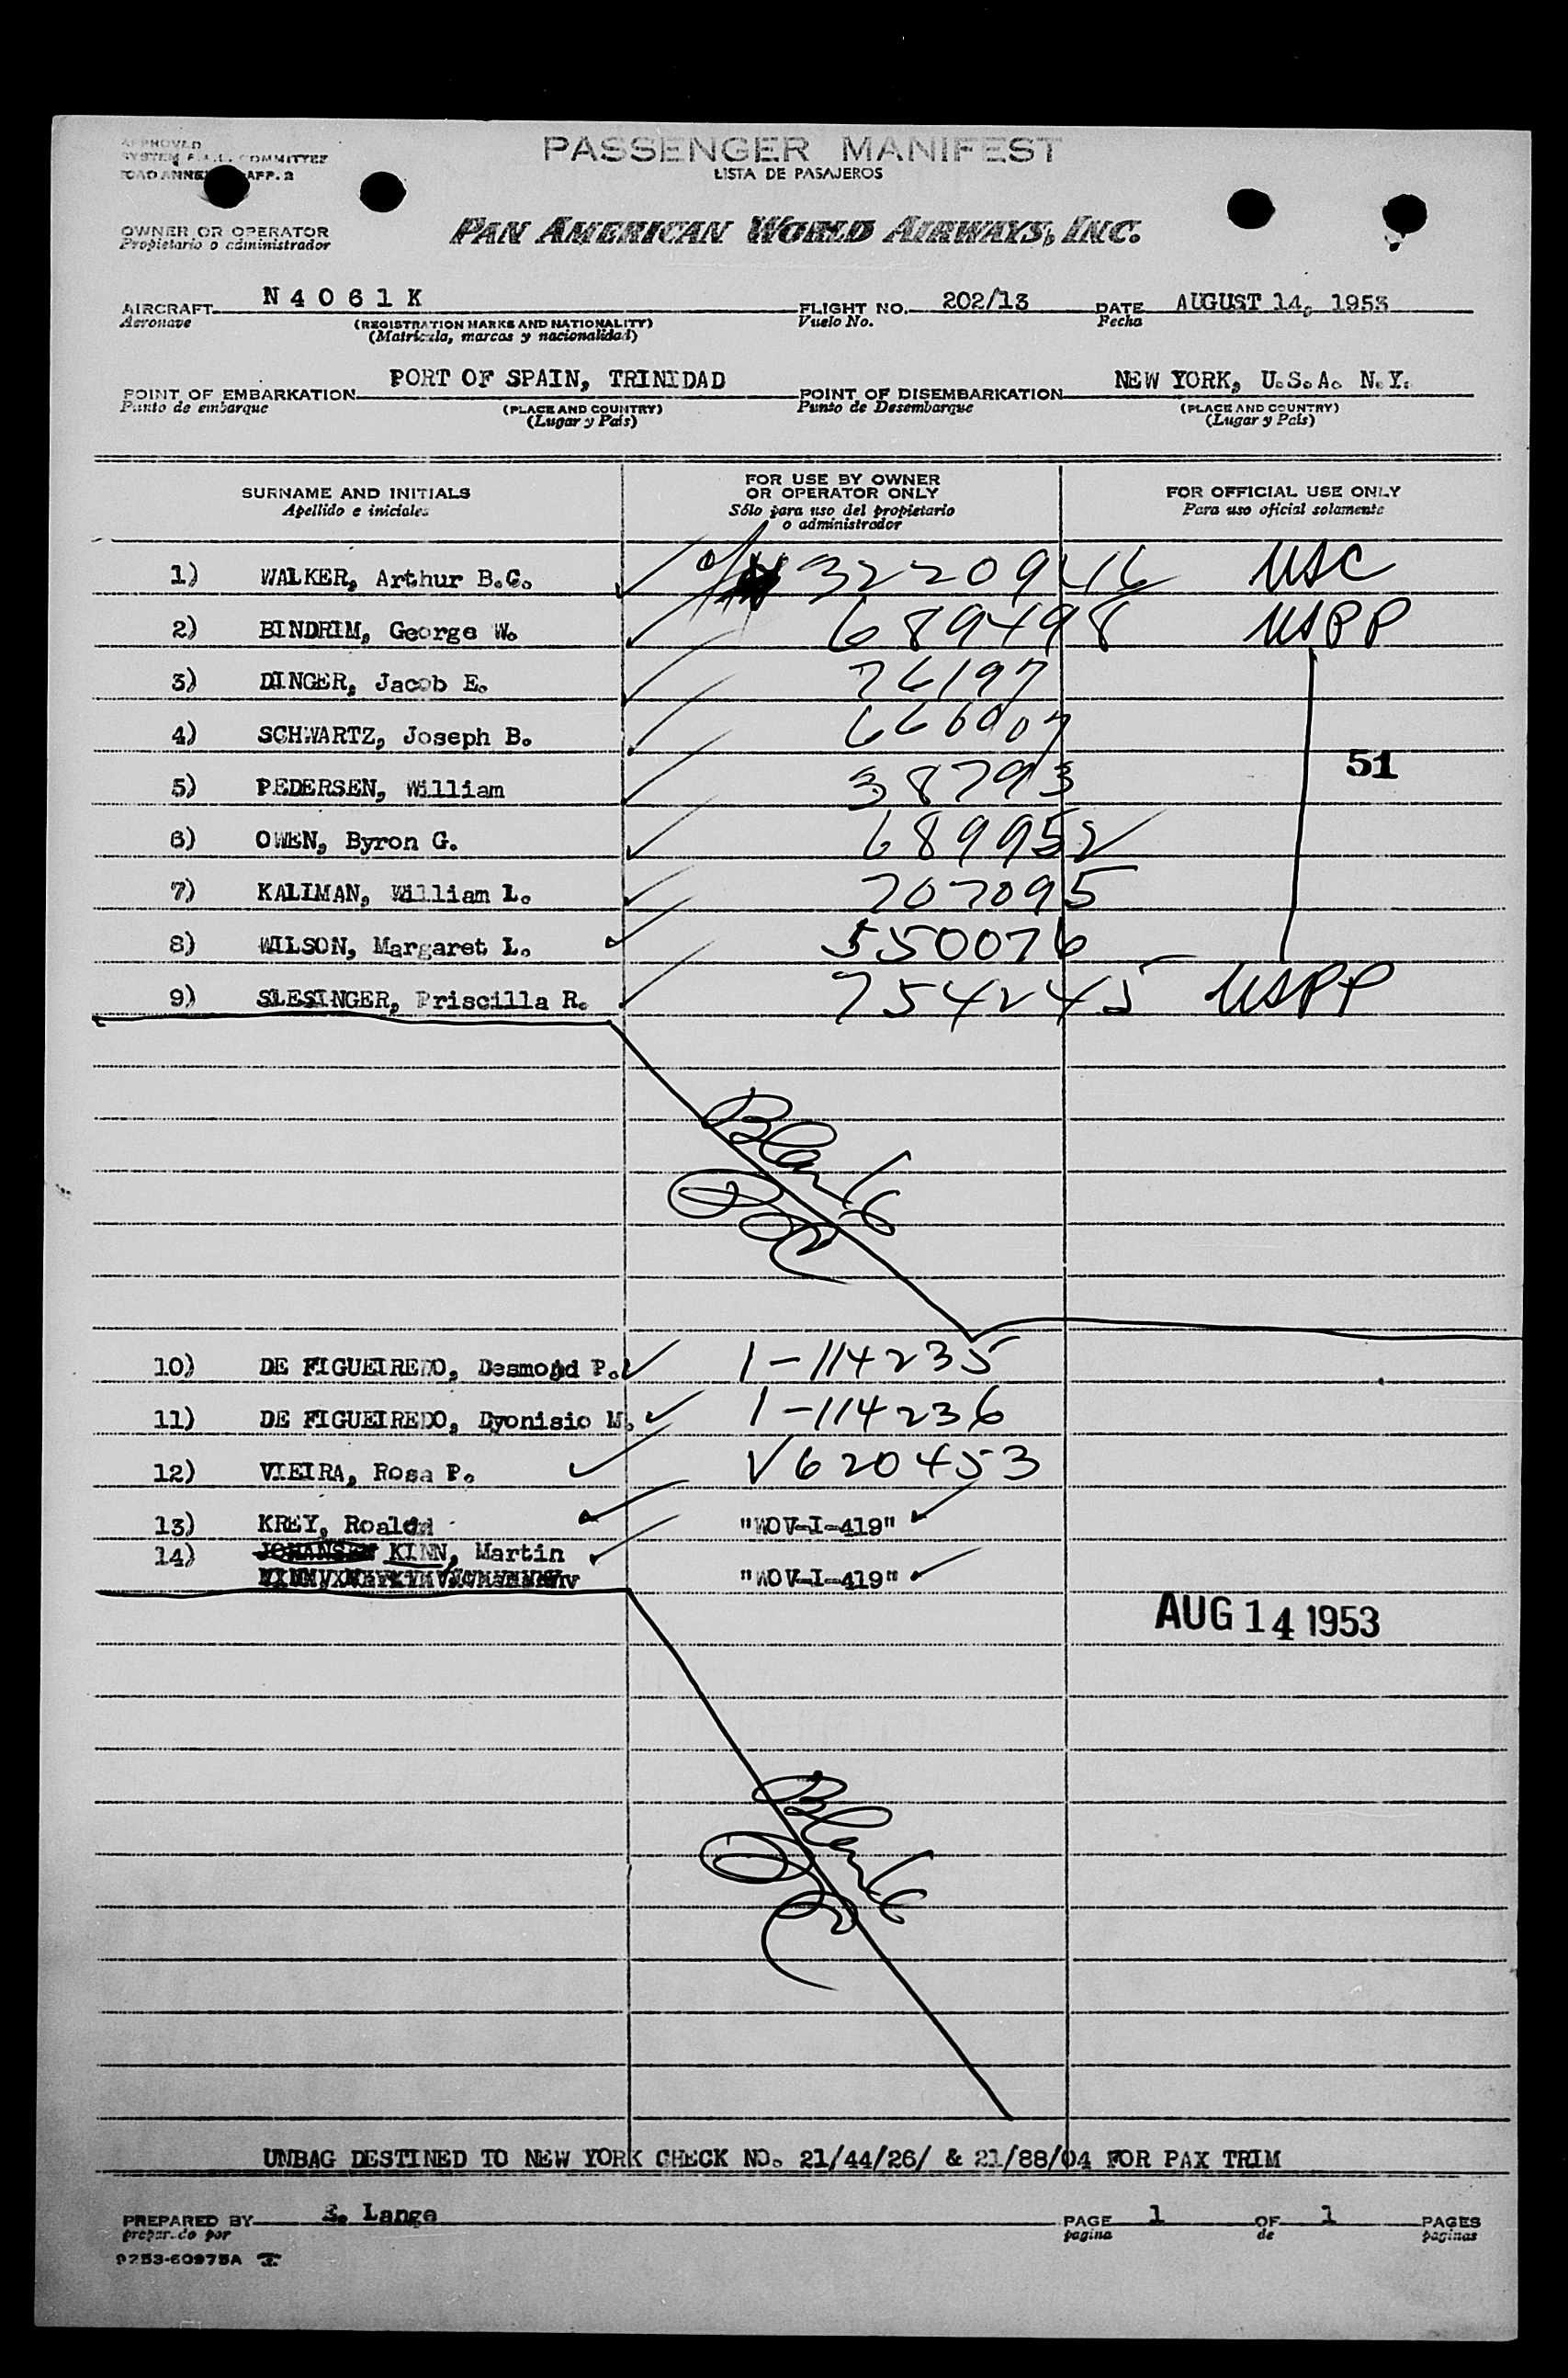 APPROVED
SYSTEM F.A.L. COMMITTEE
ICAO ANNEX APP. 2
PASSENGER MANIFEST
LISTA DE PASAJEROS
OWNER OR OPERATOR
Propietario o administrador
PAN AMERICAN WORLD AIRWAYS, INC.
AIRCRAFT N 4 0 6 1 K FLIGHT NO. 202/13 DATE AUGUST 14, 1953
Aeronave (REGISTRATION MARKS AND NATIONALITY) Vuelo No. Fecha
(Matrícula, marcas y nacionalidad)
POINT OF EMBARKATION PORT OF SPAIN, TRINIDAD POINT OF DISEMBARKATION NEW YORK, U.S.A. N.Y.
Punto de embarque (PLACE AND COUNTRY) Punto de Desembarque (PLACE AND COUNTRY)
(Lugar y País) (Lugar y País)
SURNAME AND INITIALS FOR USE BY OWNER OR OPERATOR ONLY FOR OFFICIAL USE ONLY
Apellido e iniciales Sólo para uso del propietario o administrador Para uso oficial solamente
1) WALKER, Arthur B.C. 32209416 USC
2) BINDRIM, George W. 689498 USPP
3) DINGER, Jacob E. 76197
4) SCHWARTZ, Joseph B.
51
5) PEDERSEN, William 38793
6) OWEN, Byron G. 689952
7) KALIMAN, William L. 707095
8) WILSON, Margaret L. 550076
9) SLESINGER, Priscilla R. 754245 USPP
Blank
10) DE FIGUEIREDO, Desmond P. 1-114235
11) DE FIGUEIREDO, Dyonisio M. 1-114236
12) VIEIRA, Rosa P. V620453
13) KREY, Roald "WOV-I-419"
14) JOHANSEN KINN, Martin
"WOV-I-419"
AUG 14 1953
Blank
UNBAG DESTINED TO NEW YORK CHECK NO. 21/44/26/ & 21/88/04 FOR PAX TRIM
PREPARED BY S. Lange PAGE 1 OF 1 PAGES
preparado por pagina de paginas
9253-60975A